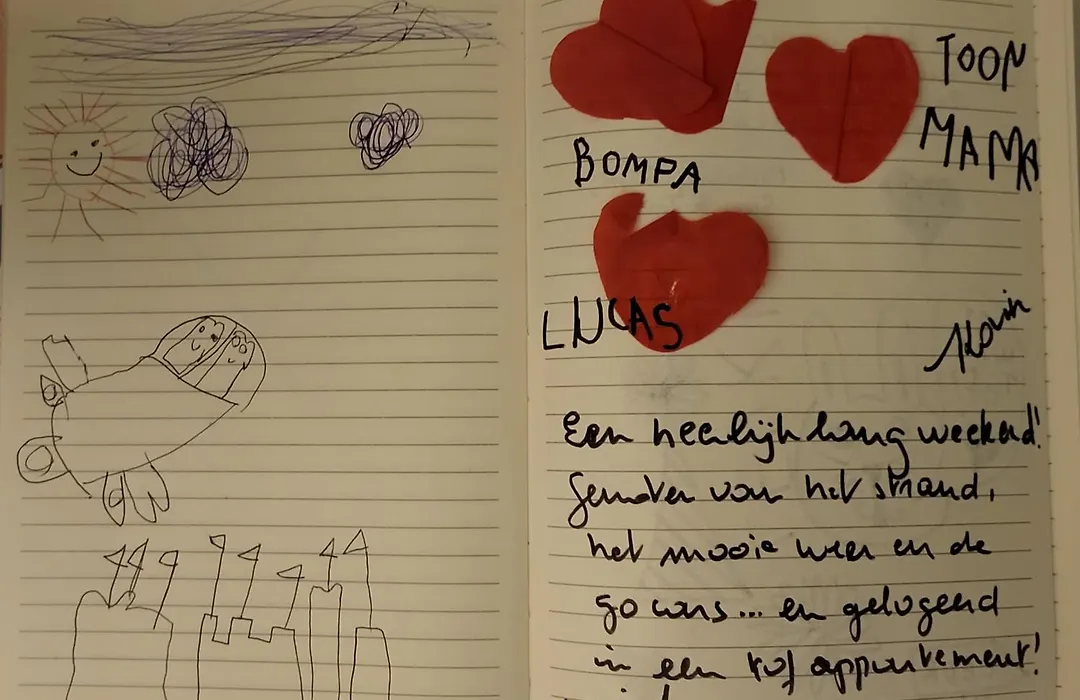 TOON
MAMA
BOMPA
LUCAS
Kevin
Een heerlijk lang weekend!
Genoten van het strand,
het mooie weer en de
go cars... en gelogeerd
in een tof appartement!